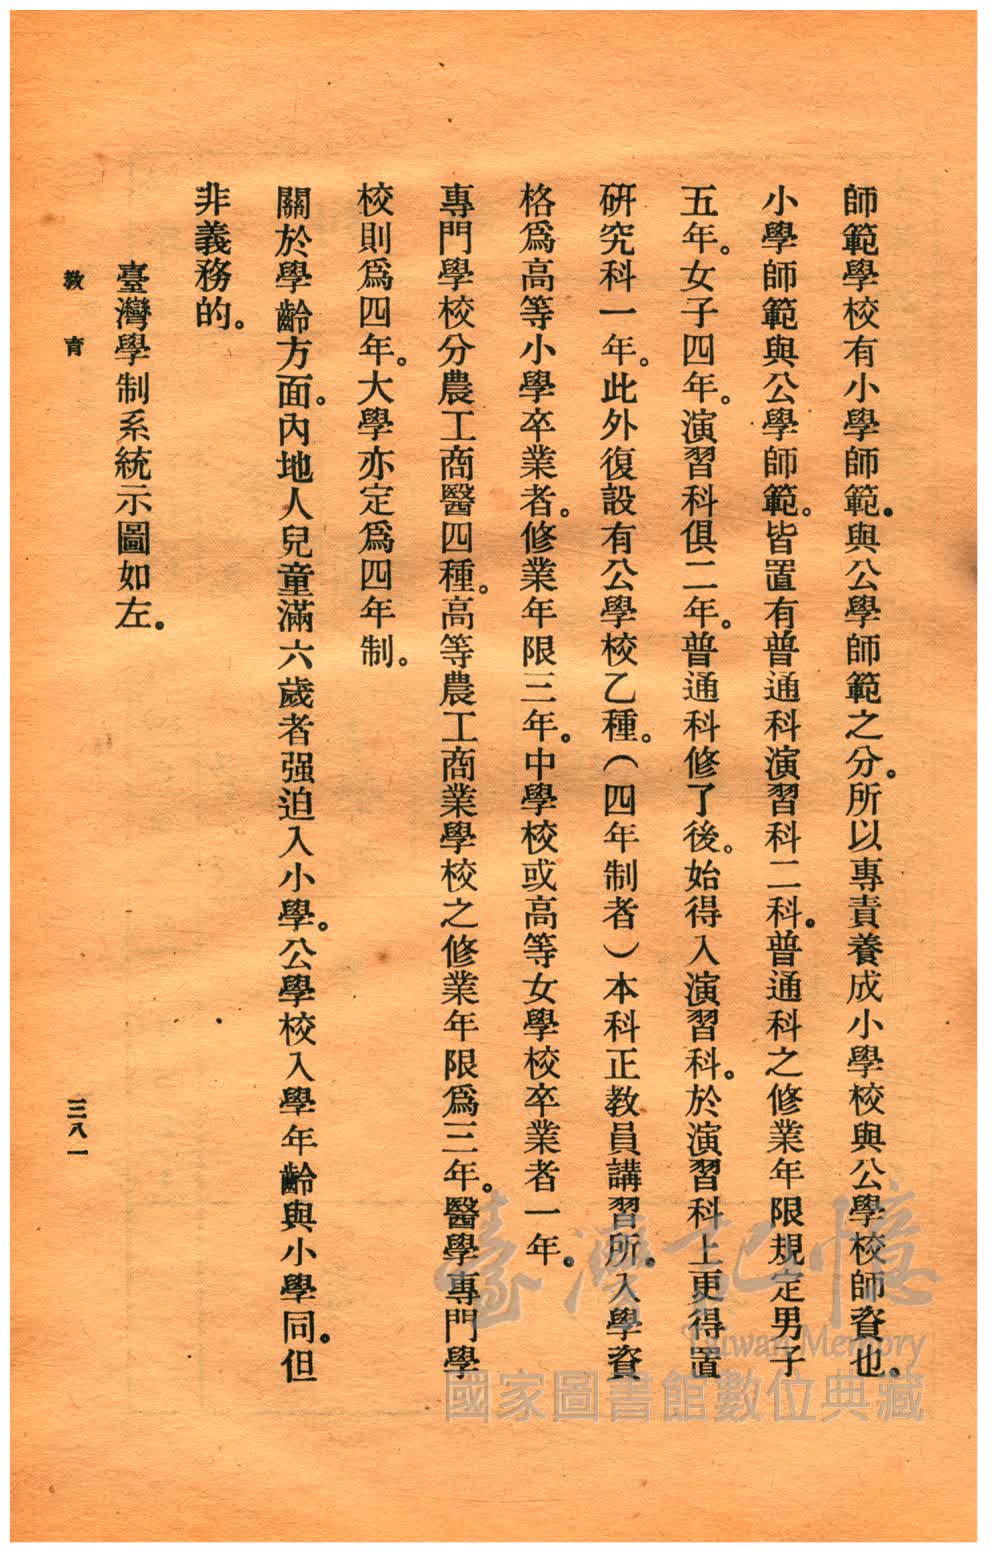 師範學校有小學師範。與公學師範之分。所以專責養成小學校與公學校師資也。
小學師範與公學師範。皆置有普通科演習科二科。普通科之修業年限規定男子
五年。女子四年。演習科俱二年。普通科修了後。始得入演習科。於演習科上更得置
研究科一年。此外復設有公學校乙種。(四年制者)本科正教員講習所。入學資
格爲高等小學卒業者。修業年限三年。中學校或高等女學校卒業者一年。
專門學校分農工商醫四種。高等農工商業學校之修業年限爲三年。醫學專門學
校則爲四年。大學亦定爲四年制。
關於學齡方面。內地人兒童滿六歲者强迫入小學。公學校入學年齡與小學同。但
非義務的。
臺灣學制系統示圖如左。
教育
三八一
臺灣記憶
Taiwan Memory
國家圖書館數位典藏